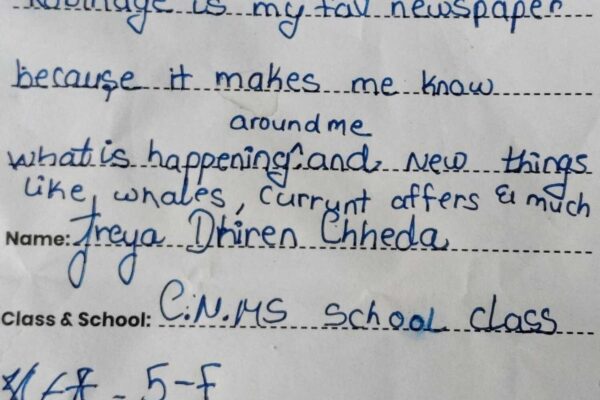 is my fav newspaper
because it makes me know
around me
what is happening^and, new things
like, whales, Currynt affers & much
Name: Dhiren Chheda
Class & School: C.N.MS school class
5-F